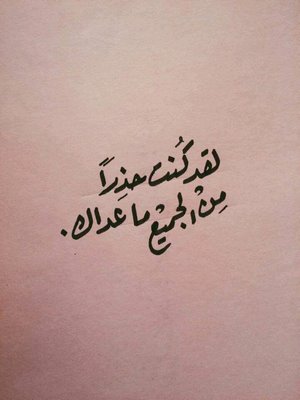 لقد كُنت حذِراً
مِنْ الجميْع ما عداك.